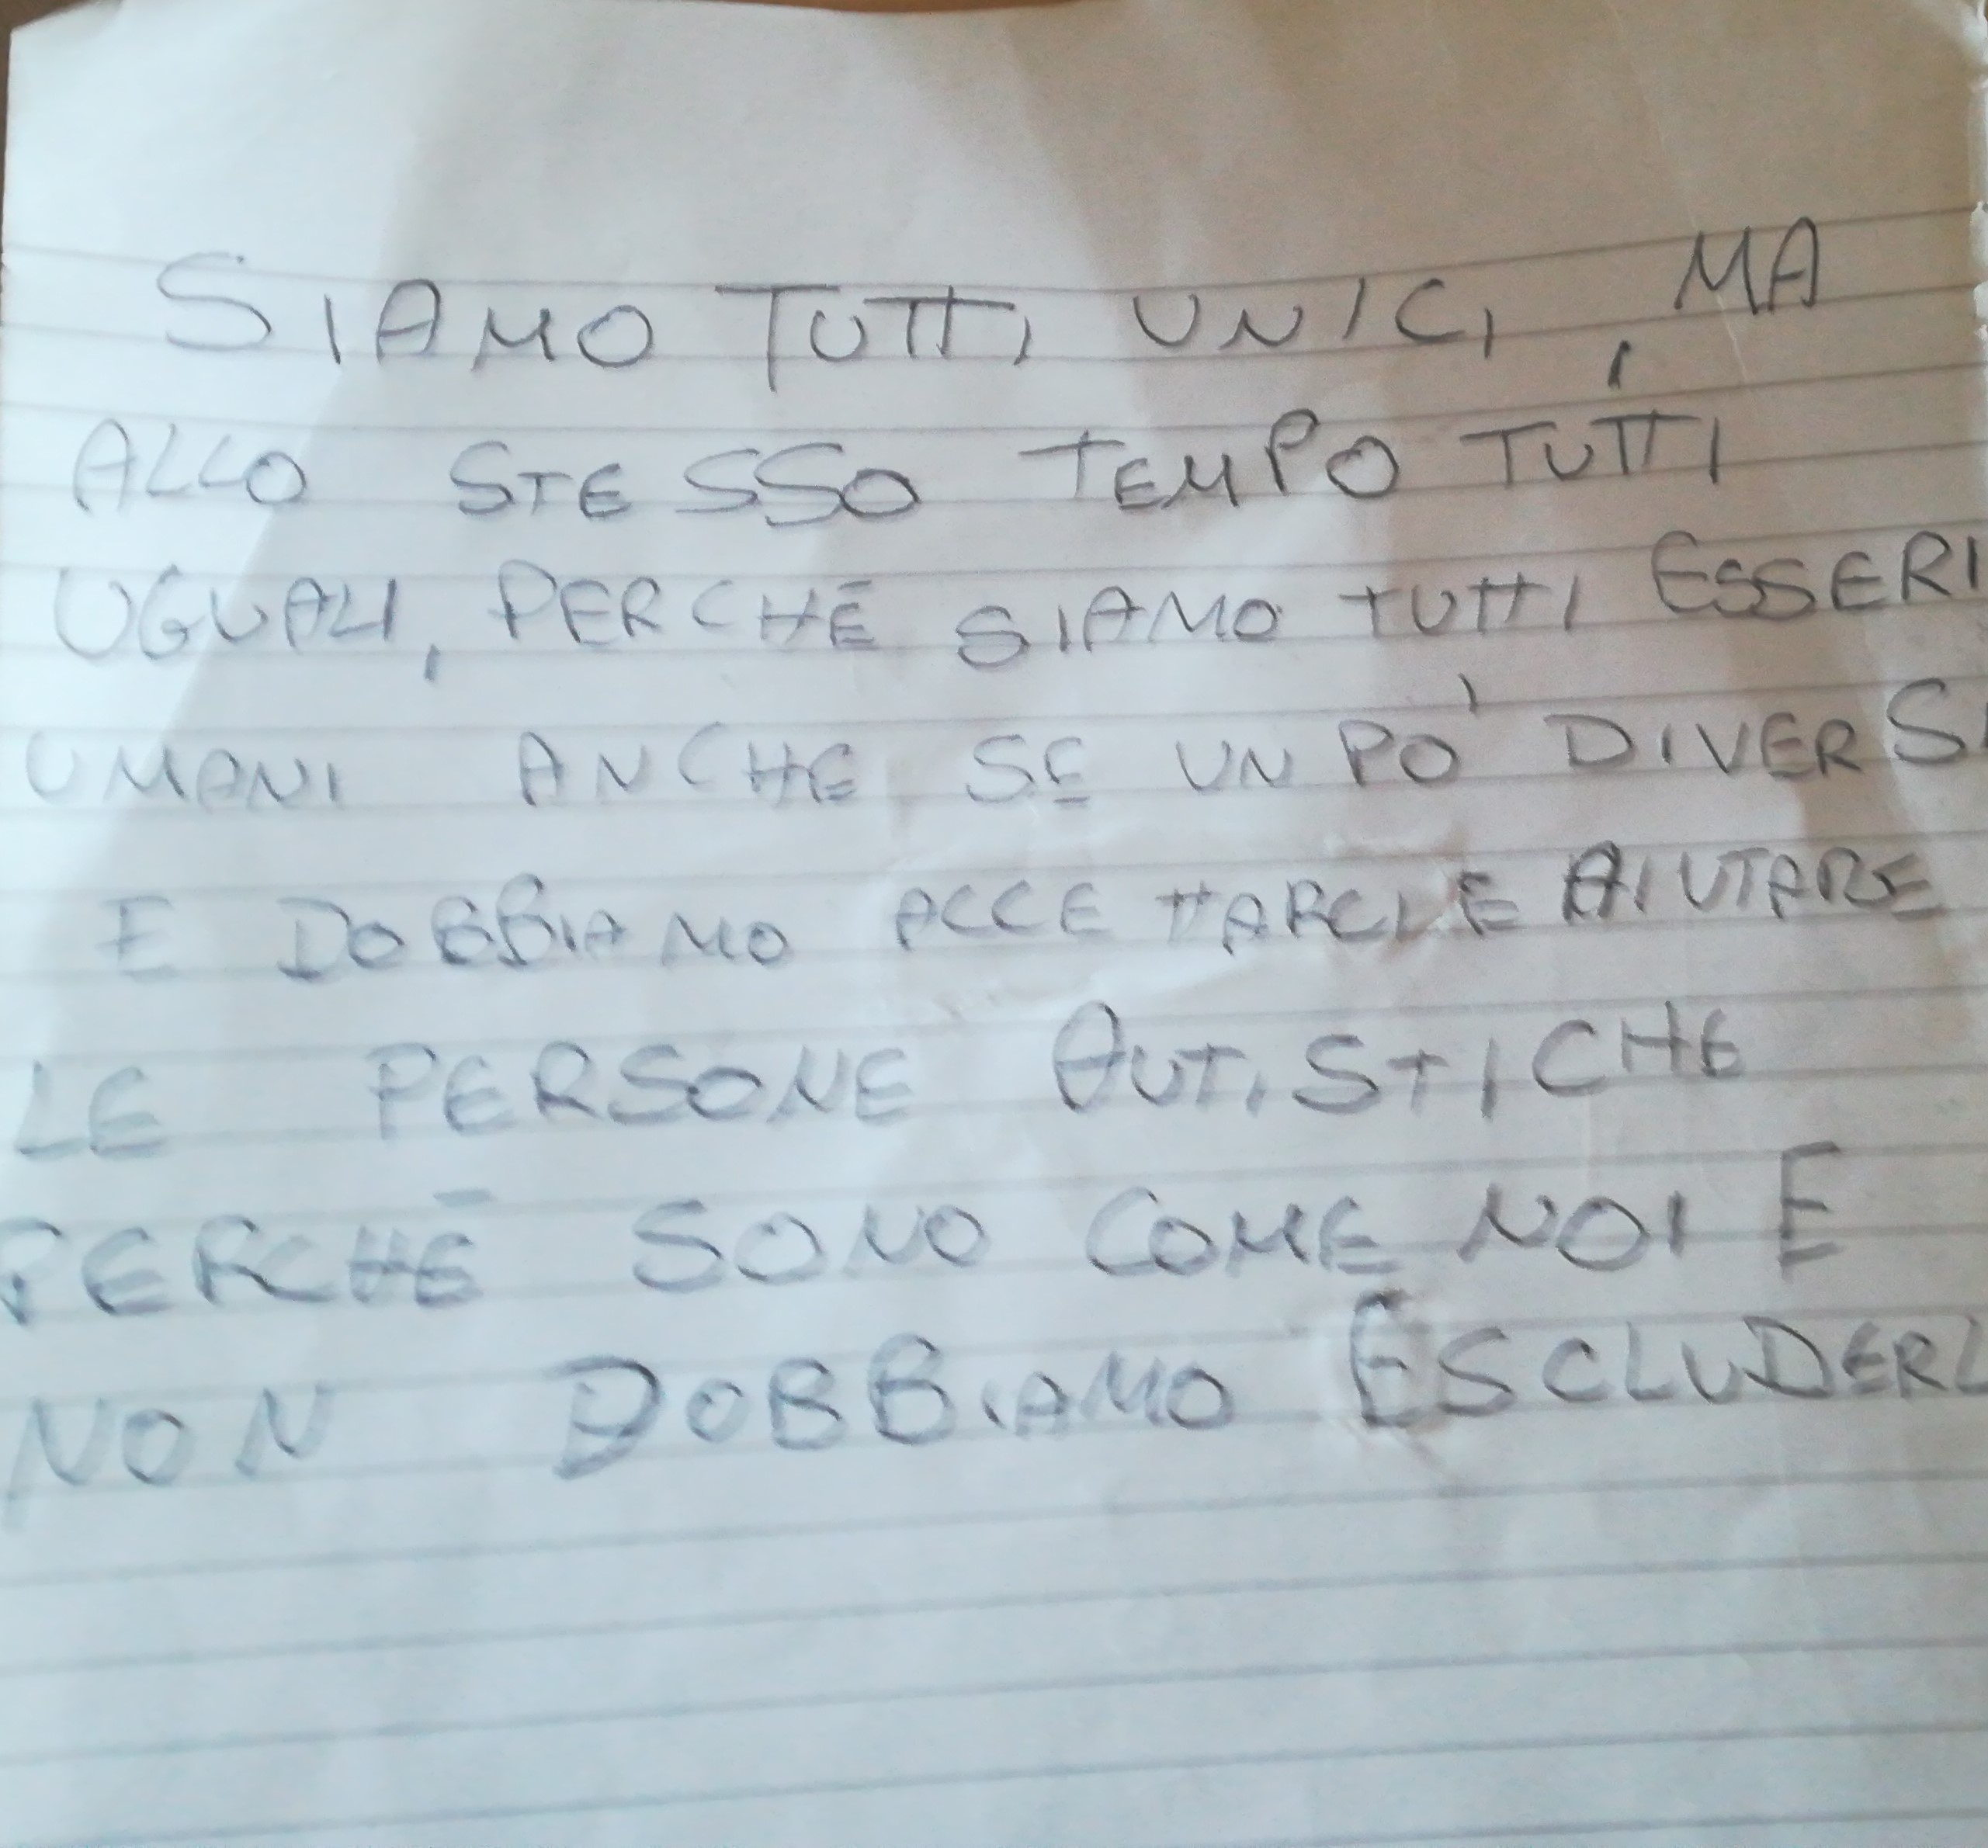 SIAMO TUTTI UNICI, MA
ALLO STESSO TEMPO TUTTI
UGUALI, PERCHÉ SIAMO TUTTI ESSERI
UMANI ANCHE SE UN PO' DIVERSI
E DOBBIAMO ACCETTARCI E AIUTARE
LE PERSONE AUTISTICHE
PERCHÉ SONO COME NOI E
NON DOBBIAMO